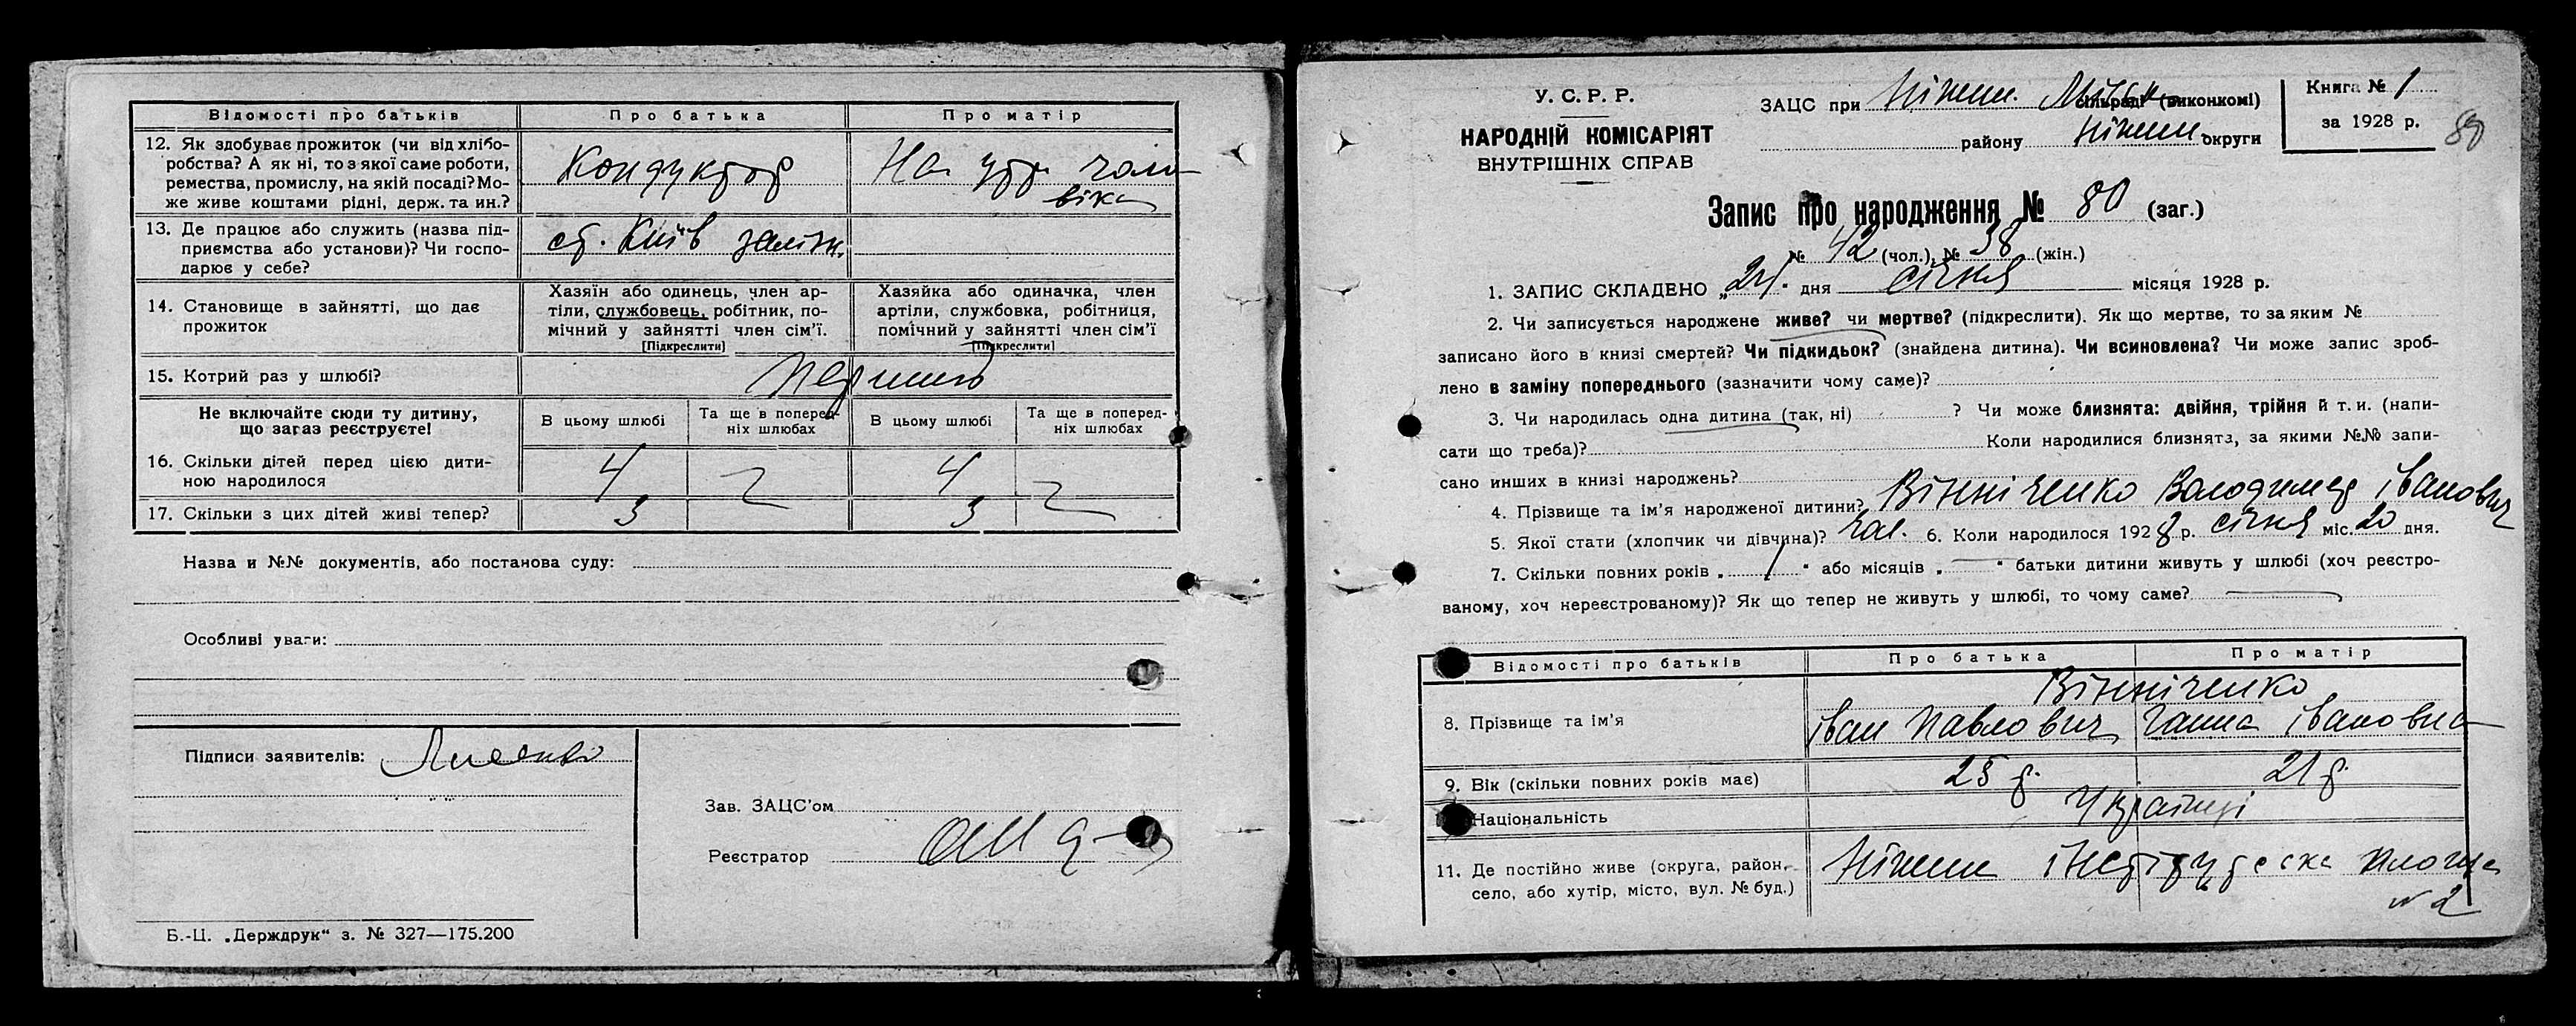 Відомості про батьків
Про батька
Про матір
12. Як здобуває прожиток (чи від хлібо-
робства? А як ні, то з якої саме роботи,
ремества, промислу, на якій посаді? Мо-
же живе коштами рідні, держ. та ин.?
Кондуктор
На утр. чоло
віка
13. Де працює або служить (назва під-
приємства або установи)? Чи госпо-
дарює у себе?
ст. Київ залізн.
14. Становище в зайнятті, що дає
прожиток
Хазяїн або одинець, член ар-
тіли, службовець, робітник, по-
мічний у зайнятті член сім'ї.
[Підкреслити]
Хазяйка або одиначка, член
артіли, службовка, робітниця,
помічний у зайнятті член сім'ї
[Підкреслити]
15. Котрий раз у шлюбі?
Не включайте сюди ту дитину,
що зараз реєструєте!
В цьому шлюбі
Та ще в поперед-
ніх шлюбах
В цьому шлюбі
Та ще в поперед-
ніх шлюбах
16. Скільки дітей перед цією дити-
ною народилося
4
4
17. Скільки з цих дітей живі тепер?
3
3
Назва и №№ документів, або постанова суду:
Особливі уваги:
Підписи заявителів:
Зав. ЗАЦС'ом
Реєстратор
Б.-Ц. „Держдрук" з. № 327—175.200
У. С. Р. Р.
НАРОДНІЙ КОМІСАРІЯТ
ВНУТРІШНІХ СПРАВ
ЗАЦС при Ніжин. Міськ сільраді (виконкомі)
району Ніжин. округи
Книга № 1
за 1928 р.
80
Запис про народження № 80 (заг.)
№ 42 (чол.), № 38 (жін.)
1. ЗАПИС СКЛАДЕНО „24" дня січня місяця 1928 р.
2. Чи записується народжене живе? чи мертве? (підкреслити). Як що мертве, то за яким №
записано його в книзі смертей? Чи підкидьок? (знайдена дитина). Чи всиновлена? Чи може запис зроб-
лено в заміну попереднього (зазначити чому саме)?
3. Чи народилась одна дитина (так, ні) ? Чи може близнята: двійня, трійня й т. и. (напи-
сати що треба)? Коли народилися близнята, за якими №№ запи-
сано инших в книзі народжень?
4. Прізвище та ім'я народженої дитини? Вінніченко Володимер Іванович
5. Якої стати (хлопчик чи дівчина)? чол. 6. Коли народилося 1928 р. січня міс. 20 дня.
7. Скільки повних років „ / " або місяців „ — " батьки дитини живуть у шлюбі (хоч реєстро-
ваному, хоч нереєстрованому)? Як що тепер не живуть у шлюбі, то чому саме?
Відомості про батьків
Про батька
Про матір
8. Прізвище та ім'я
Вінніченко
Іван Павлович
Ганна Івановна
9. Вік (скільки повних років має)
25 р.
21 р.
Національність
Українці
11. Де постійно живе (округа, район,
село, або хутір, місто, вул. № буд.)
Ніжин Інститутська площа
№ 2